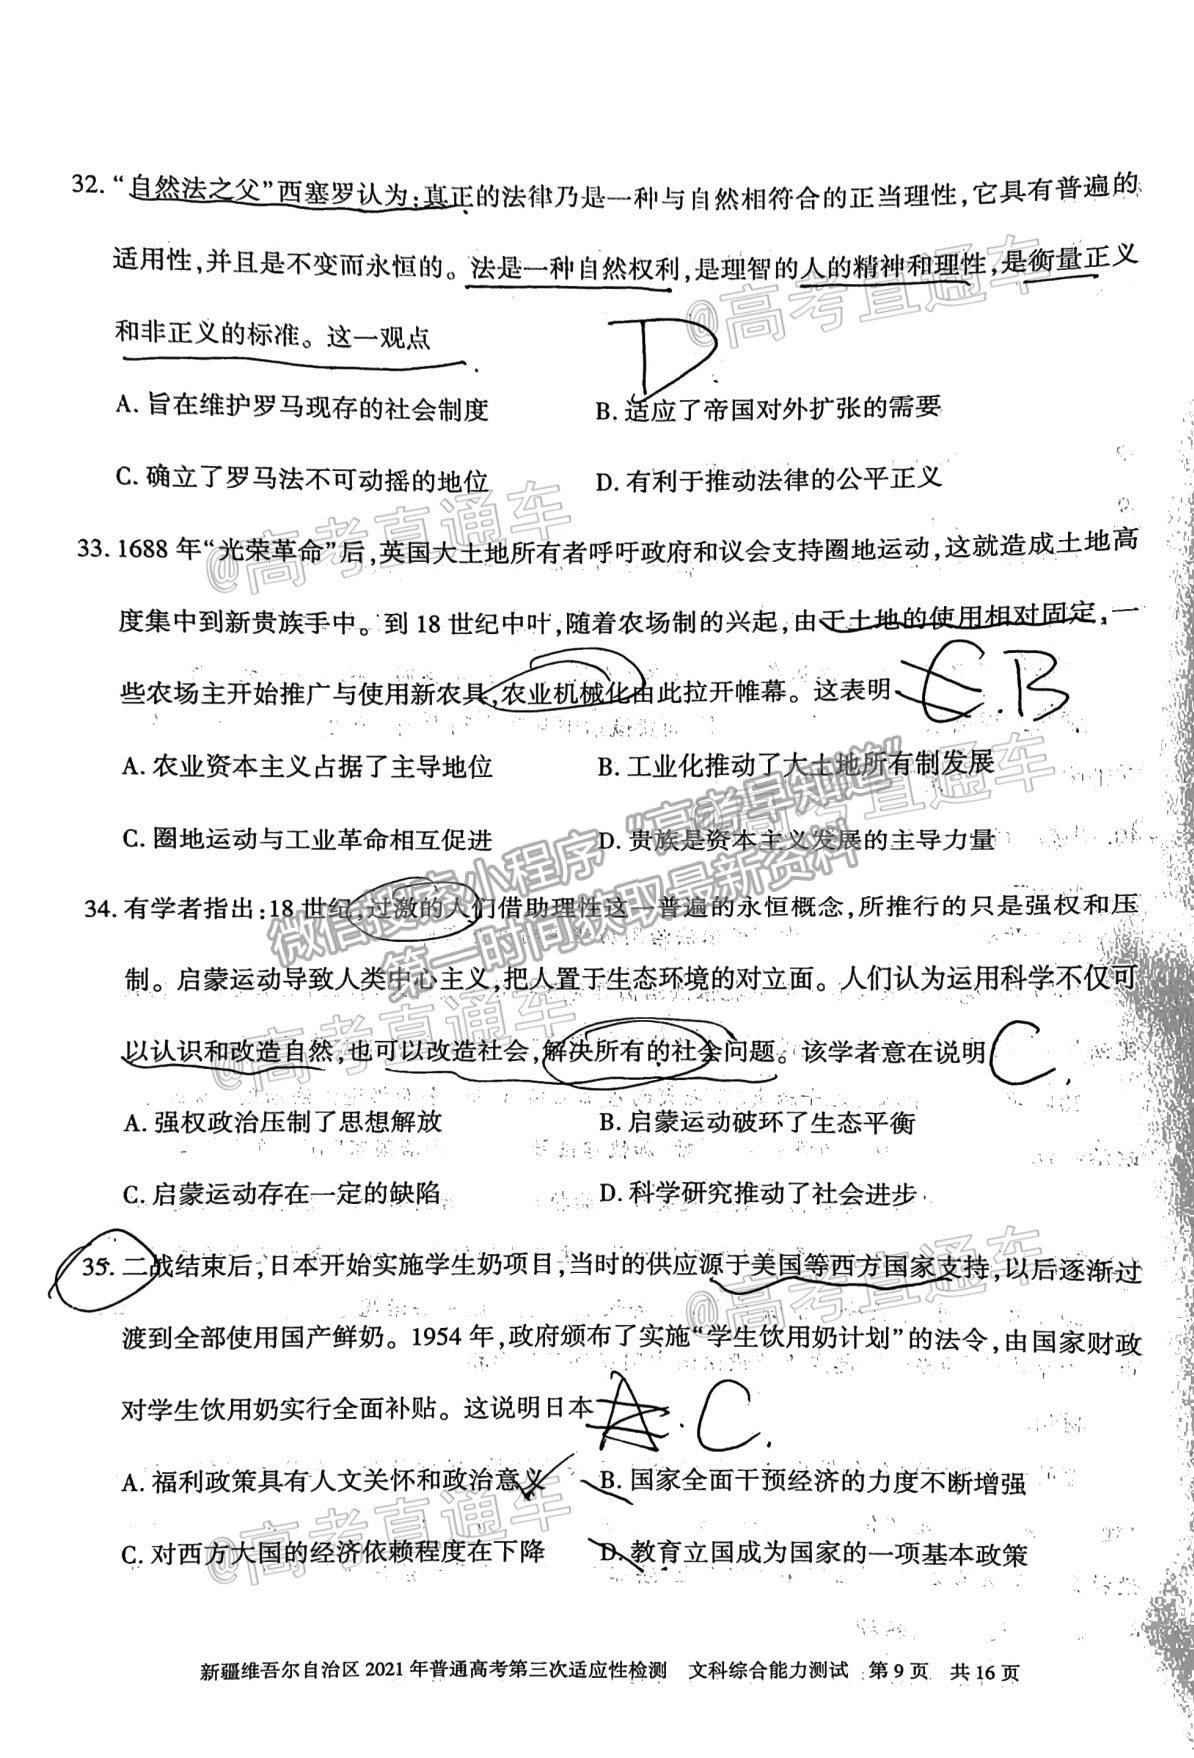 32. “自然法之父”西塞罗认为:真正的法律乃是一种与自然相符合的正当理性,它具有普遍的
适用性,并且是不变而永恒的。法是一种自然权利,是理智的人的精神和理性,是衡量正义
@高考直通车
和非正义的标准。这一观点
D
A. 旨在维护罗马现存的社会制度 B. 适应了帝国对外扩张的需要
C. 确立了罗马法不可动摇的地位 D. 有利于推动法律的公平正义
@高考直通车
33. 1688 年“光荣革命”后,英国大土地所有者呼吁政府和议会支持圈地运动,这就造成土地高
度集中到新贵族手中。到 18 世纪中叶,随着农场制的兴起,由于土地的使用相对固定,一
些农场主开始推广与使用新农具,农业机械化由此拉开帷幕。这表明
C.B
A. 农业资本主义占据了主导地位 B. 工业化推动了大土地所有制发展
@高考直通车
C. 圈地运动与工业革命相互促进 D. 贵族是资本主义发展的主导力量
微信搜索小程序“高考早知道”
第一时间获取最新资料
34. 有学者指出:18 世纪,过激的人们借助理性这一普遍的永恒概念,所推行的只是强权和压
制。启蒙运动导致人类中心主义,把人置于生态环境的对立面。人们认为运用科学不仅可
@高考直通车
以认识和改造自然,也可以改造社会,解决所有的社会问题。该学者意在说明
C.
A. 强权政治压制了思想解放 B. 启蒙运动破坏了生态平衡
C. 启蒙运动存在一定的缺陷 D. 科学研究推动了社会进步
35. 二战结束后,日本开始实施学生奶项目,当时的供应源于美国等西方国家支持,以后逐渐过
@高考直通车
渡到全部使用国产鲜奶。1954 年,政府颁布了实施“学生饮用奶计划”的法令,由国家财政
对学生饮用奶实行全面补贴。这说明日本
A.C.
A. 福利政策具有人文关怀和政治意义 B. 国家全面干预经济的力度不断增强
@高考直通车
C. 对西方大国的经济依赖程度在下降 D. 教育立国成为国家的一项基本政策
新疆维吾尔自治区 2021 年普通高考第三次适应性检测 文科综合能力测试 第 9 页 共 16 页